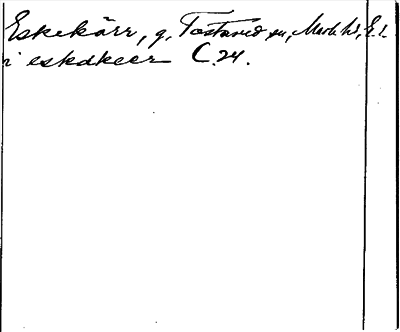 Eskekärr, g. Tostared sn, Mark hd, E.l.
i eskakeer C.24.